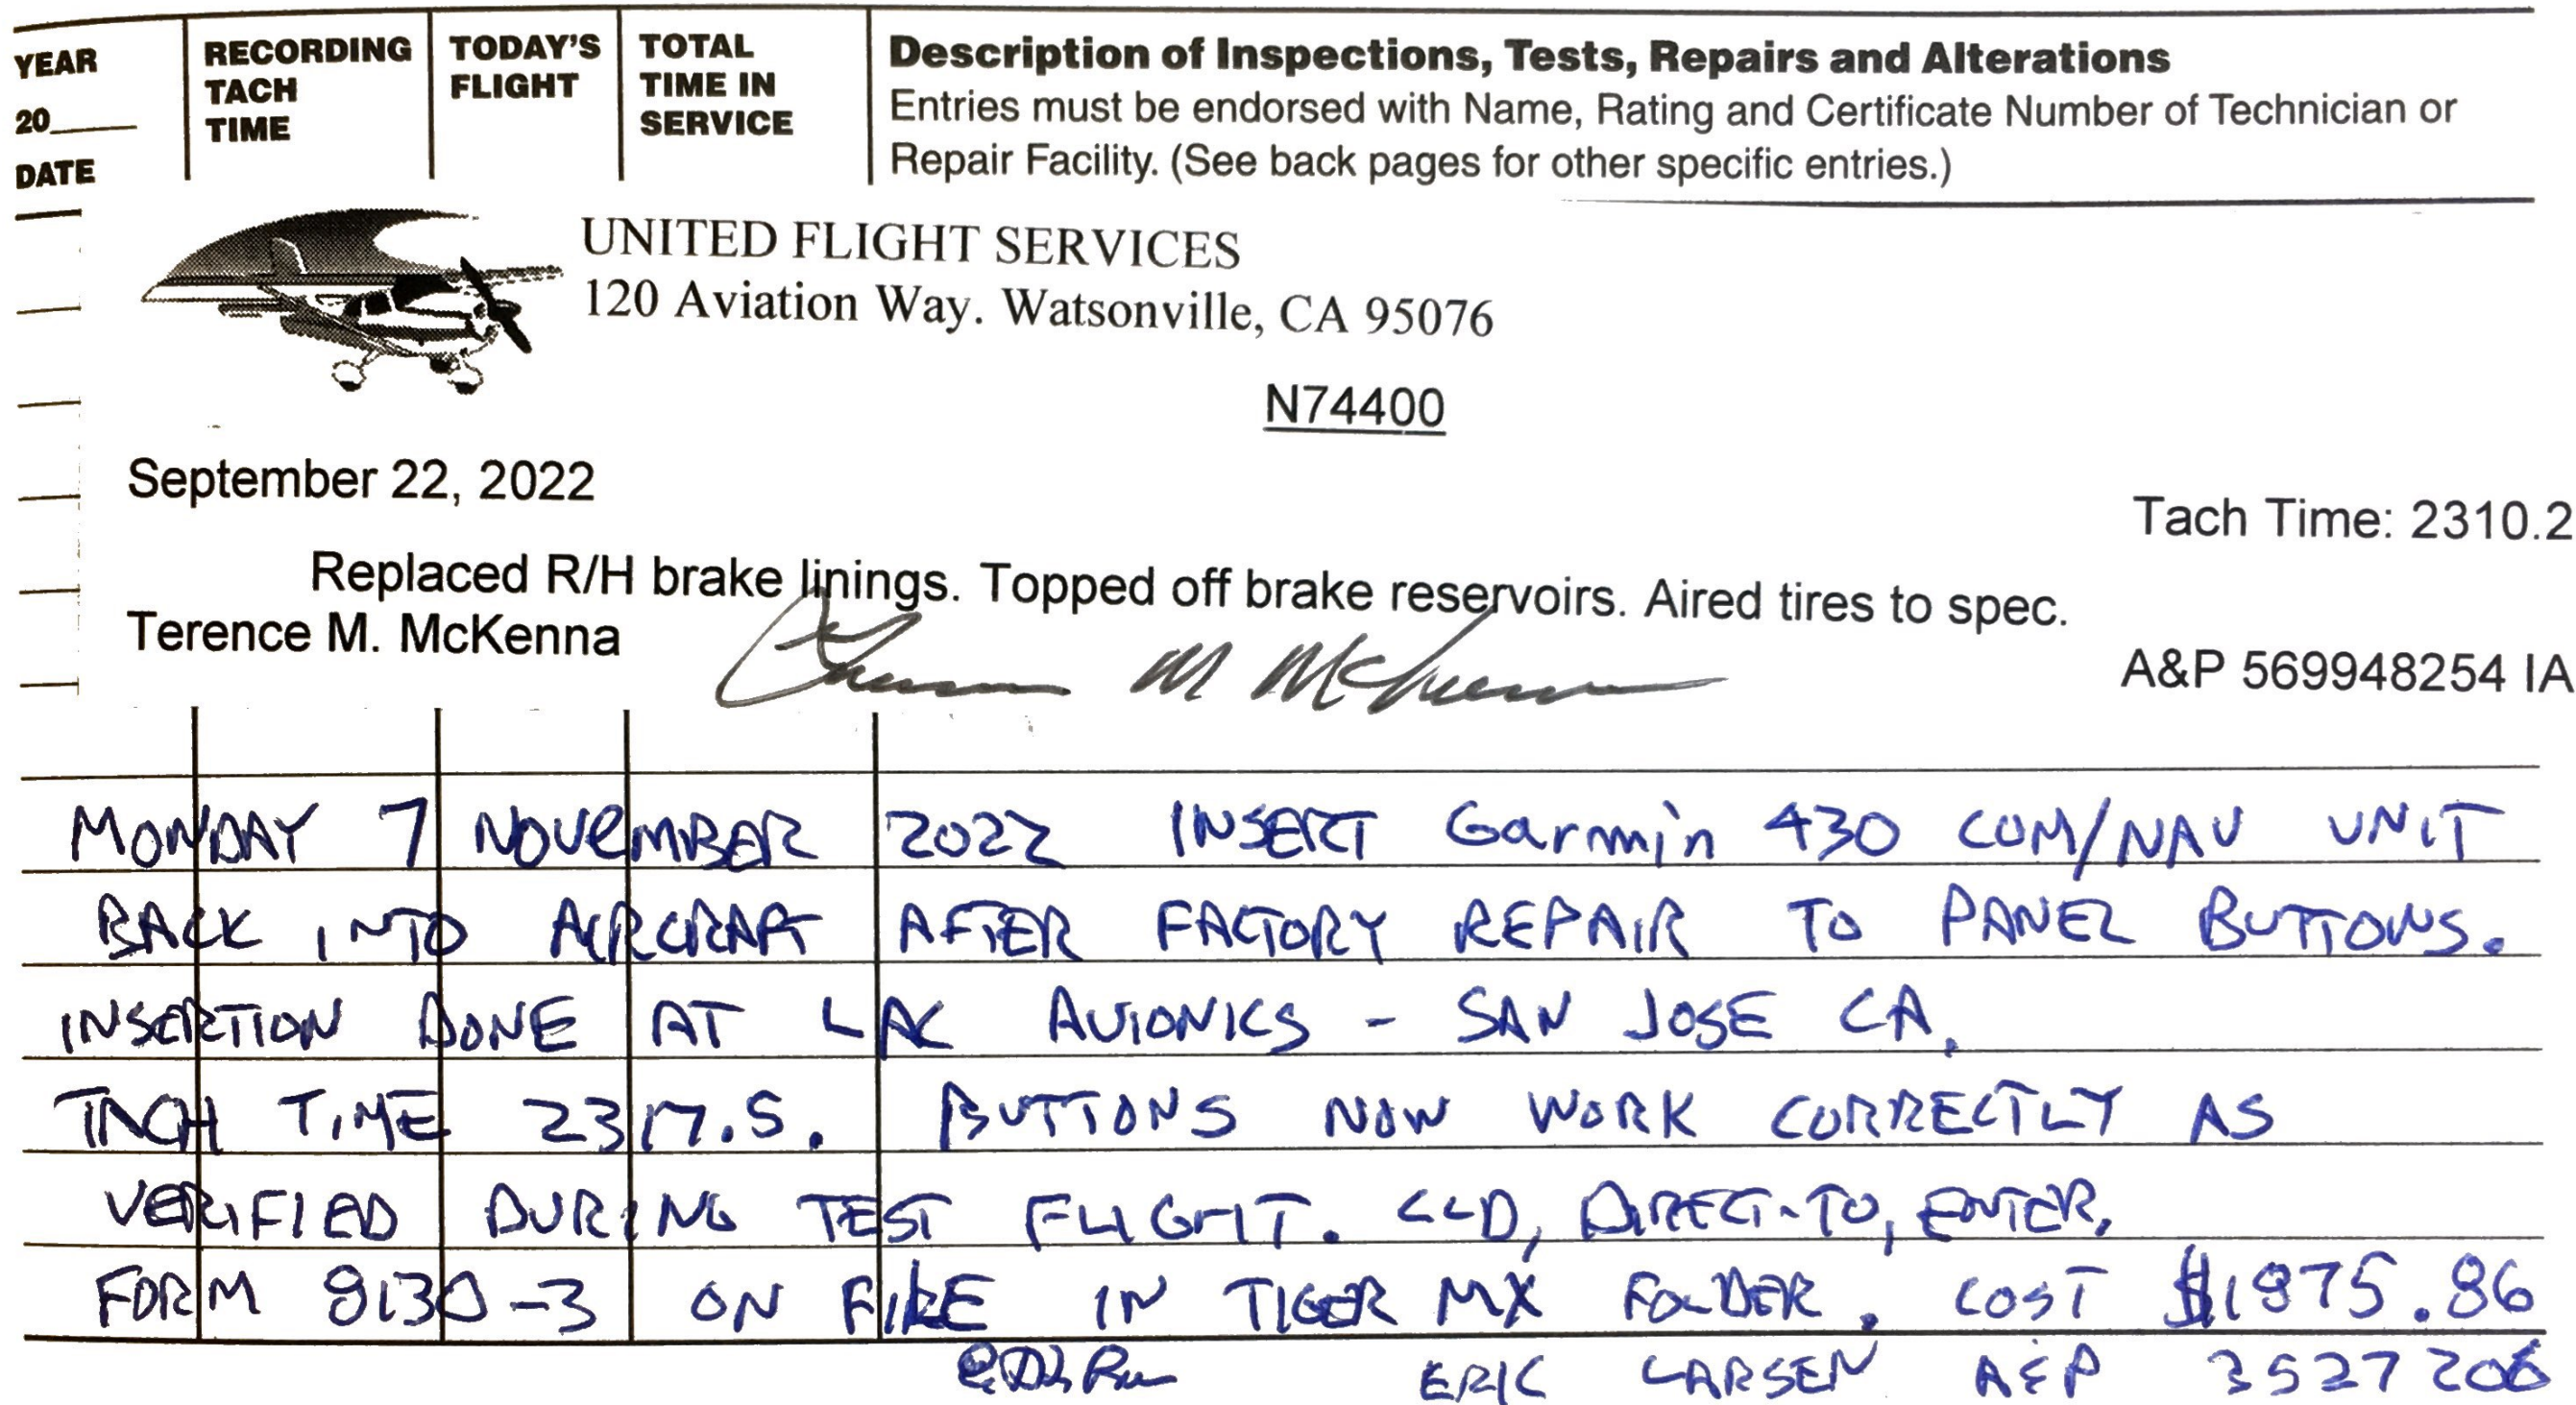 YEAR RECORDING TODAY'S TOTAL Description of Inspections, Tests, Repairs and Alterations
20____ TACH FLIGHT TIME IN Entries must be endorsed with Name, Rating and Certificate Number of Technician or
DATE TIME SERVICE Repair Facility. (See back pages for other specific entries.)
UNITED FLIGHT SERVICES
120 Aviation Way. Watsonville, CA 95076
N74400
September 22, 2022
Tach Time: 2310.2
Replaced R/H brake linings. Topped off brake reservoirs. Aired tires to spec.
Terence M. McKenna
A&P 569948254 IA
MONDAY 7 NOVEMBER 2022 INSERT Garmin 430 COM/NAV UNIT
BACK INTO AIRCRAFT AFTER FACTORY REPAIR TO PANEL BUTTONS.
INSERTION DONE AT LAC AVIONICS - SAN JOSE CA.
TACH TIME 2317.5. BUTTONS NOW WORK CORRECTLY AS
VERIFIED DURING TEST FLIGHT. CLD, DIRECT-TO, ENTER.
FORM 8130-3 ON FILE IN TIGER MX FOLDER. COST $1975.86
ERIC LARSEN A&P 3527206